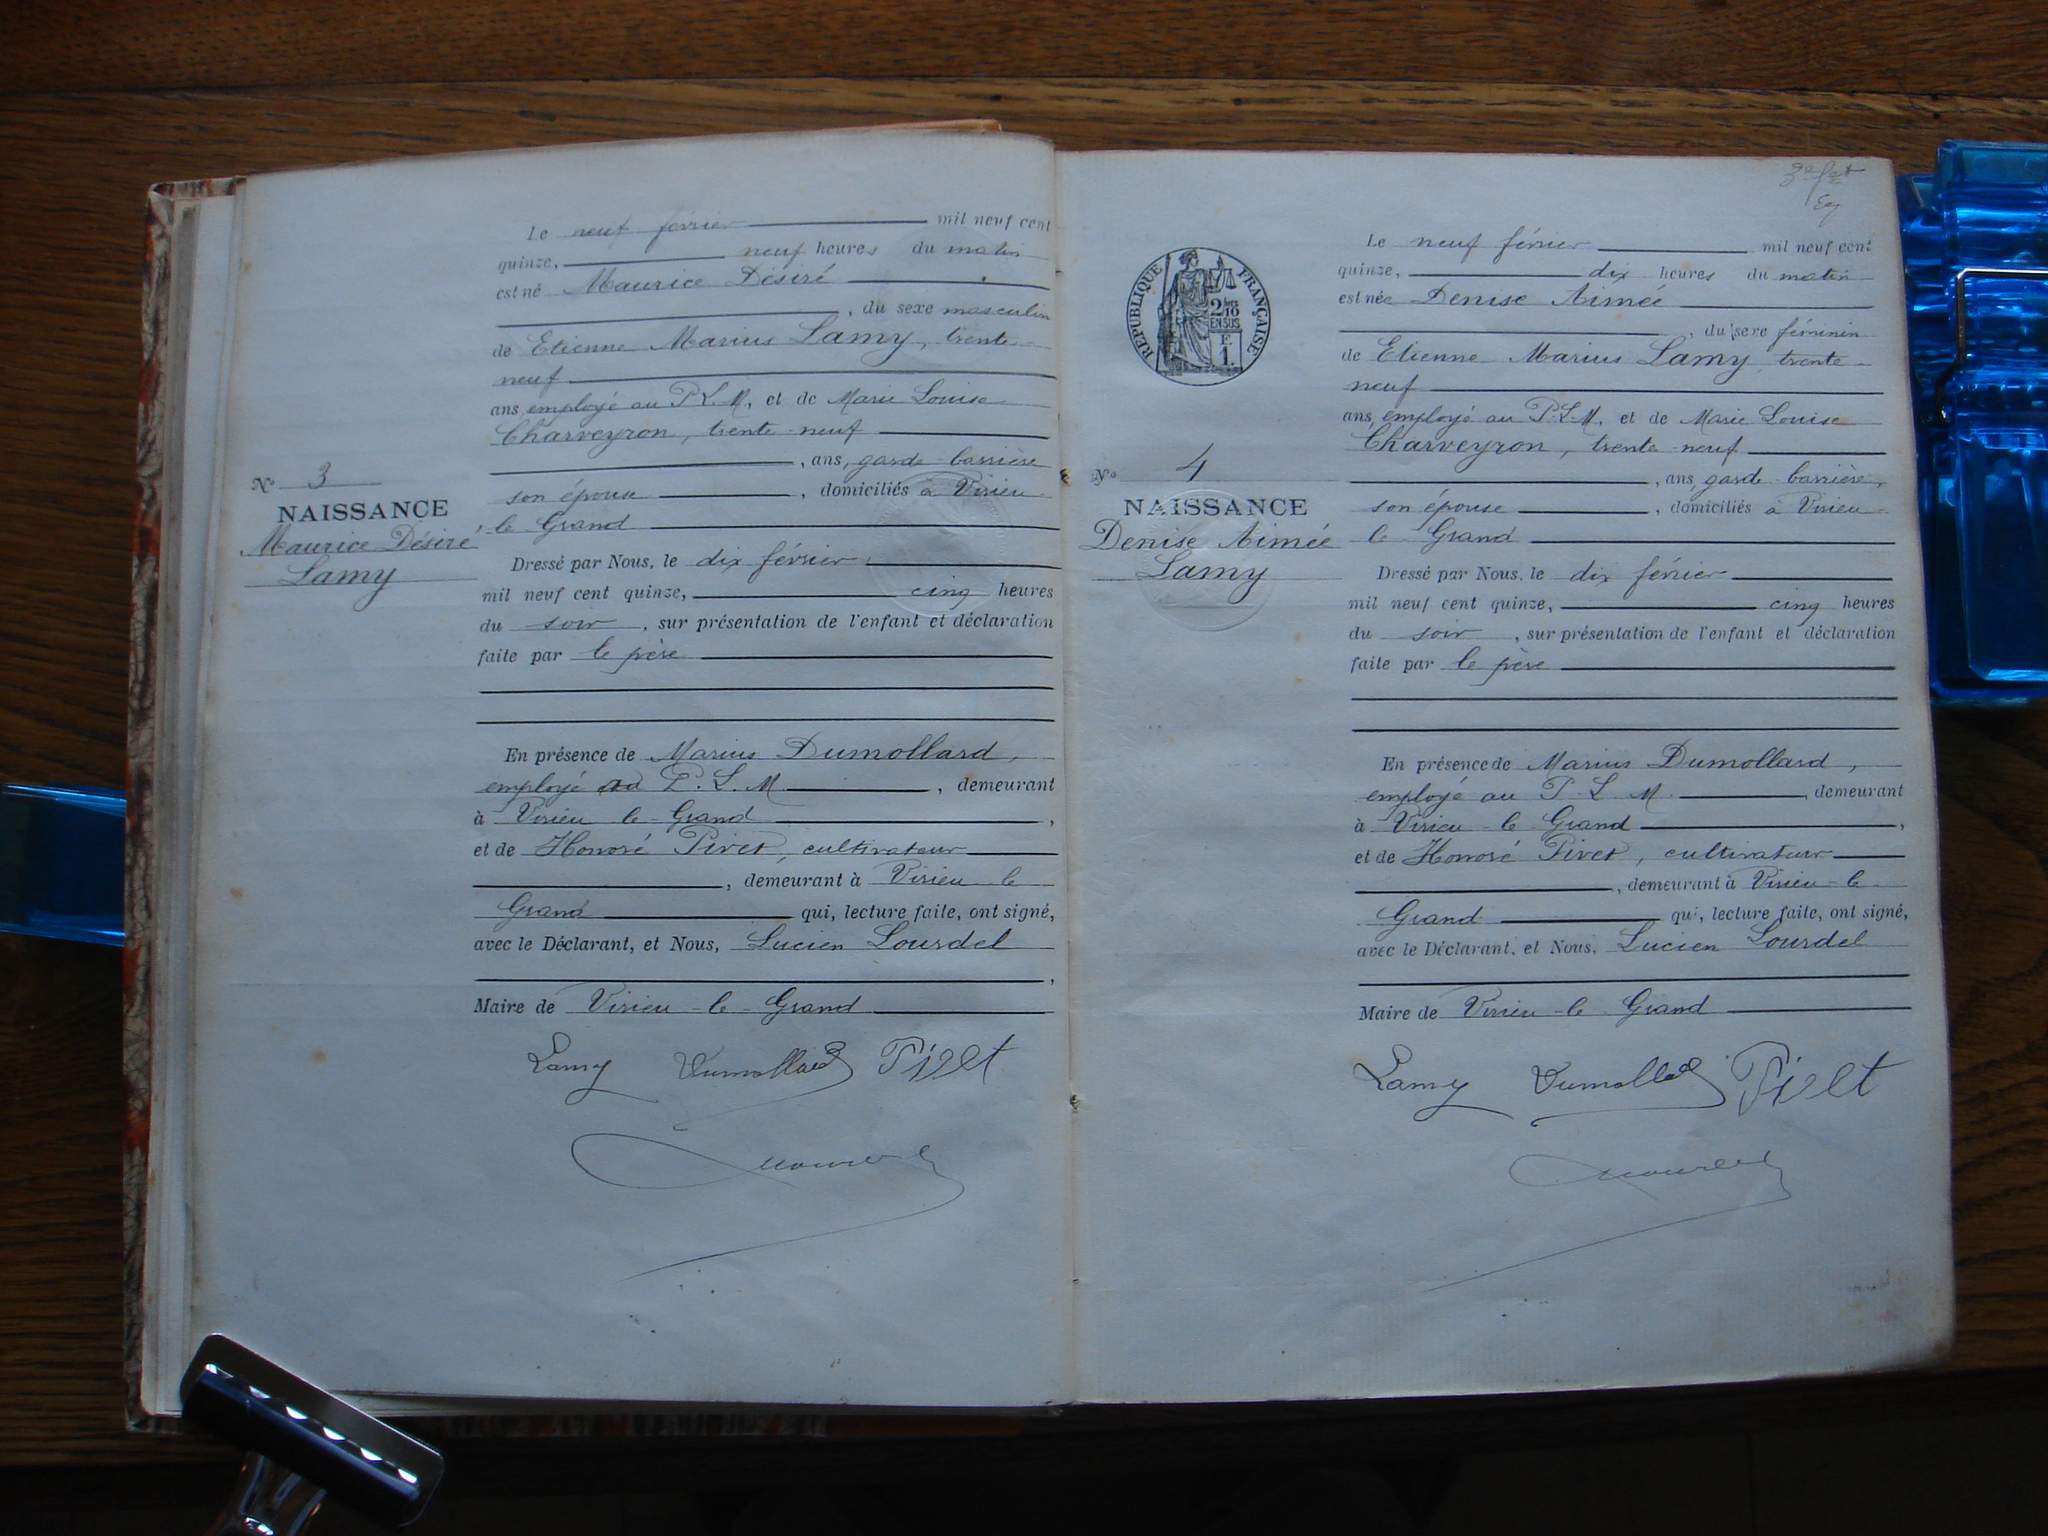 Le neuf février mil neuf cent
quinze, neuf heures du matin
est né Maurice Désiré
, du sexe masculin
de Etienne Marius Lamy, trente-
neuf
ans, employé au P.L.M, et de Marie Louise
Charveyron, trente-neuf
, ans, garde-barrière
son épouse , domiciliés à Virieu-
le Grand
N° 3
NAISSANCE
Maurice Désiré
Lamy
Dressé par Nous, le dix février
mil neuf cent quinze, cinq heures
du soir , sur présentation de l'enfant et déclaration
faite par le père
En présence de Marius Dumollard,
employé au P. L. M , demeurant
à Virieu-le-Grand ,
et de Honoré Pivet, cultivateur
, demeurant à Virieu-le-
Grand qui, lecture faite, ont signé,
avec le Déclarant, et Nous, Lucien Lourdel
,
Maire de Virieu-le-Grand
Lamy Dumollard Pivet
Lourdel
RÉPUBLIQUE FRANÇAISE
2/10
EN SUS
F
1.
Le neuf février mil neuf cent
quinze, dix heures du matin
est née Denise Aimée
, du sexe féminin
de Etienne Marius Lamy, trente-
neuf
ans, employé au P.L.M. et de Marie Louise
Charveyron, trente-neuf
, ans, garde-barrière,
son épouse , domiciliés à Virieu-
le-Grand
N° 4
NAISSANCE
Denise Aimée
Lamy
Dressé par Nous, le dix février
mil neuf cent quinze, cinq heures
du soir , sur présentation de l'enfant et déclaration
faite par le père
En présence de Marius Dumollard,
employé au P. L. M. , demeurant
à Virieu-le-Grand ,
et de Honoré Pivet, cultivateur
, demeurant à Virieu-le-
Grand qui, lecture faite, ont signé,
avec le Déclarant, et Nous, Lucien Lourdel
Maire de Virieu-le-Grand
Lamy Dumollard Pivet
Lourdel